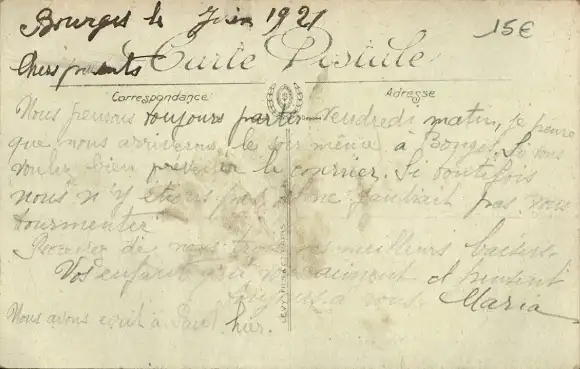 Bourges le Juin 1921
15€
Carte Postale
Chers parents
Correspondance
Adresse
Nous pensons toujours partir Vendredi matin, je pense
que nous arriverons le soir même à Si vous
voulez bien prévenir le courrier. Si toutefois
nous n'y étions pas il ne faudrait pas vous
tourmenter.
Recevez de nous trois nos meilleurs baisers.
Vos enfants qui vous aiment et pensent
toujours à vous. Maria
Nous avons écrit à Paul hier.